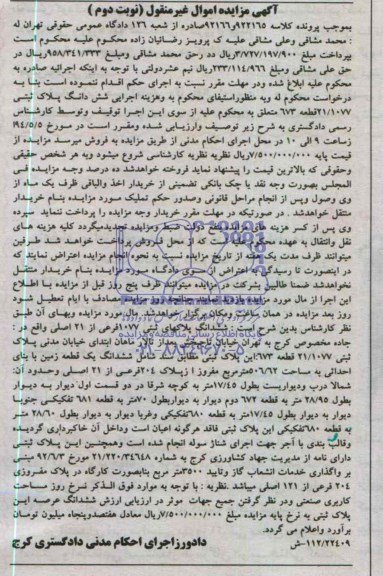 آگهی مزایده اموال غیرمنقول (نوبت دوم)
بموجب پرونده کلاسه ۹۲۲۱۶۵و۹۲۱۶۶صادره از شعبه ۱۲۶ دادگاه عمومی حقوقی تهران له
: محمد مشاقی وعلی مشاقی علیه ک پرویز رضائیان زاده محکوم علیه محکوم است
بپرداخت مبلغ ۳/۷۲۷/۱۹۷/۹۰۰ریال دد رحق محمد مشاقی ومبلغ ۹۵۸/۳۴۱/۳۳۳ریال در
حق علی مشاقی ومبلغ ۲۳۳/۱۱۴/۹۶۶ریال نیم عشردولتی با توجه به اینکه اجرائیه صادره به
محکوم علیه ابلاغ شده ودر مهلت مقرر نسبت به اجرای حکم اقدام ننموده است بنا به
درخواست محکوم له وبه منظوراستیفای محکوم به وهزینه اجرایی شش دانگ پلاک ثبتی
۲۱/۱۰۷۷قطعه ۶۷۳ متعلق به محکوم علیه از سوی این اجرا توقیف وتوسط کارشناس
رسمی دادگستری به شرح زیر توصیف وارزیابی شده ومقرر است در مورخ ۹۴/۵/۵
ساعت ۹ الی ۱۰ در محل اجرای احکام مدنی از طریق مزایده به فروش میرسد مزایده از
قیمت پایه ۷/۵۰۰/۰۰۰/۰۰۰ریال نظریه نظریه کارشناسی شروع میشود وبه هر شخص حقیقی
وحقوقی که بالاترین قیمت را پیشنهاد نماید فروخته خواهدشد ده درصد وجه مزایده فی
المجلس بصورت وجه نقد یا چک بانکی تضمینی از خریدار اخذ والباقی ظرف یک ماه از
وی وصول وپس از انجام مراحل قانونی وصدور حکم تملیک مورد مزایده بنام خریدار
منتقل خواهدشد . در صورتیکه در مهلت مقرر خریدار وجه مزایده را پرداخت ننماید سپرده
وی پس از کسر هزینه های مزایده بنفع دولت ضبط ومزایده تجدیدمیگردد کلیه هزینه های
نقل وانتقال به عهده محکوم علیه است که از محل فروش پرداخت خواهد شد طرفین
میتوانند ظرف مدت یک هفته از تاریخ مزایده نسبت به نحوه انجام مزایده اعتراض نمایند
دراینصورت تا رسیدگی به اعتراض از سوی دادگاه مورد مزایده بنام خریدار منتقل
نخواهدشد ضمنا طالبین بشرکت در مزایده میتوانند ظرف پنج روز قبل از مزایده با اطلاع
این اجرا از مال مورد مزایده بازدید نمایند چنانچه روز مزایده مصادف با ایام تعطیل شود
روز بعد مزایده در همان ساعت ومکان برگزار خواهدشد. مال مورد مزایده وبهای آن طبق
نظر کارشناس بدین شرح است : ششدانگ پلاکهای ثبتی ۱۰۷۷فرعی از ۲۱ اصلی واقع در :
جاده مخصوص کرج به تهران خیابان تاجبخش بعداز تالار ماهان ابتدای خیابان مدنی پلاک
ثبتی ۲۱/۱۰۷۷ قطعه ۶۷۳این پلاک ثبتی مطابق سند شامل ششدانگ یک قطعه زمین با بنای
احداثی به مساحت ۵۰۶/۶۲مترمربع مفروز از پلاک ۲۰۴فرعی از ۲۱ اصلی وحدود آن:
شمالا درب ودیواریت بطول ۱۷/۴۵متر به کوچه شرقا در دو قسمت اول دیوار به دیوار
بطول ۲۸/۹۵ متر به قطعه ۶۷۲ دوم دیوار به دیواربطول ۷۰متر به قطعه ۶۸۱ تفکیکی جنوبا
دیوار به دیوار بطول ۱۷/۴۵متر به قطعه ۶۸۰تفکیکی وغربا دیوار به دیوار بطول ۲۸/۶۰ متر
به قطعه ۶۸۰تفکیکی این پلاک ثبتی فاقد هرگونه اعیان است وداخل آن خاکبرداری گردیده
وقالب بندی با آجر جهت اجرای شناژ سوله انجام شده است وهمچنین این پلاک ثبتی
دارای نامه از مدیریت جهاد کشاورزی کرج به شماره ۲۱/۲۲۰/۳۴۶۴۸ مورخ ۸۲/۶/۳ مبنی
بر واگذاری خدمات انشعاب گاز وتایید ۳۵۰۰متر مربع بناصورت کارگاه در پلاک مفروزی
۲۰۴ فرعی از ۱۲۱ اصلی میباشد .نظریه : با توجه به موارد فوق الذکر نرخ روز مساحت
کاربری صنعتی ودر نظر گرفتن جمیع جهات موثر در ارزیابی ارزش ششدانگ عرصه این
پلاک ثبتی به نرخ پایه مزایده مبلغ ۷/۵۰۰/۰۰۰/۰۰۰ریال معادل هفتصدوپنجاه میلیون تومان
برآورد واعلام می گردد.
۱۱۲/۲۲۴۰۹-ش
دادورزاجرای احکام مدنی دادگستری کرج